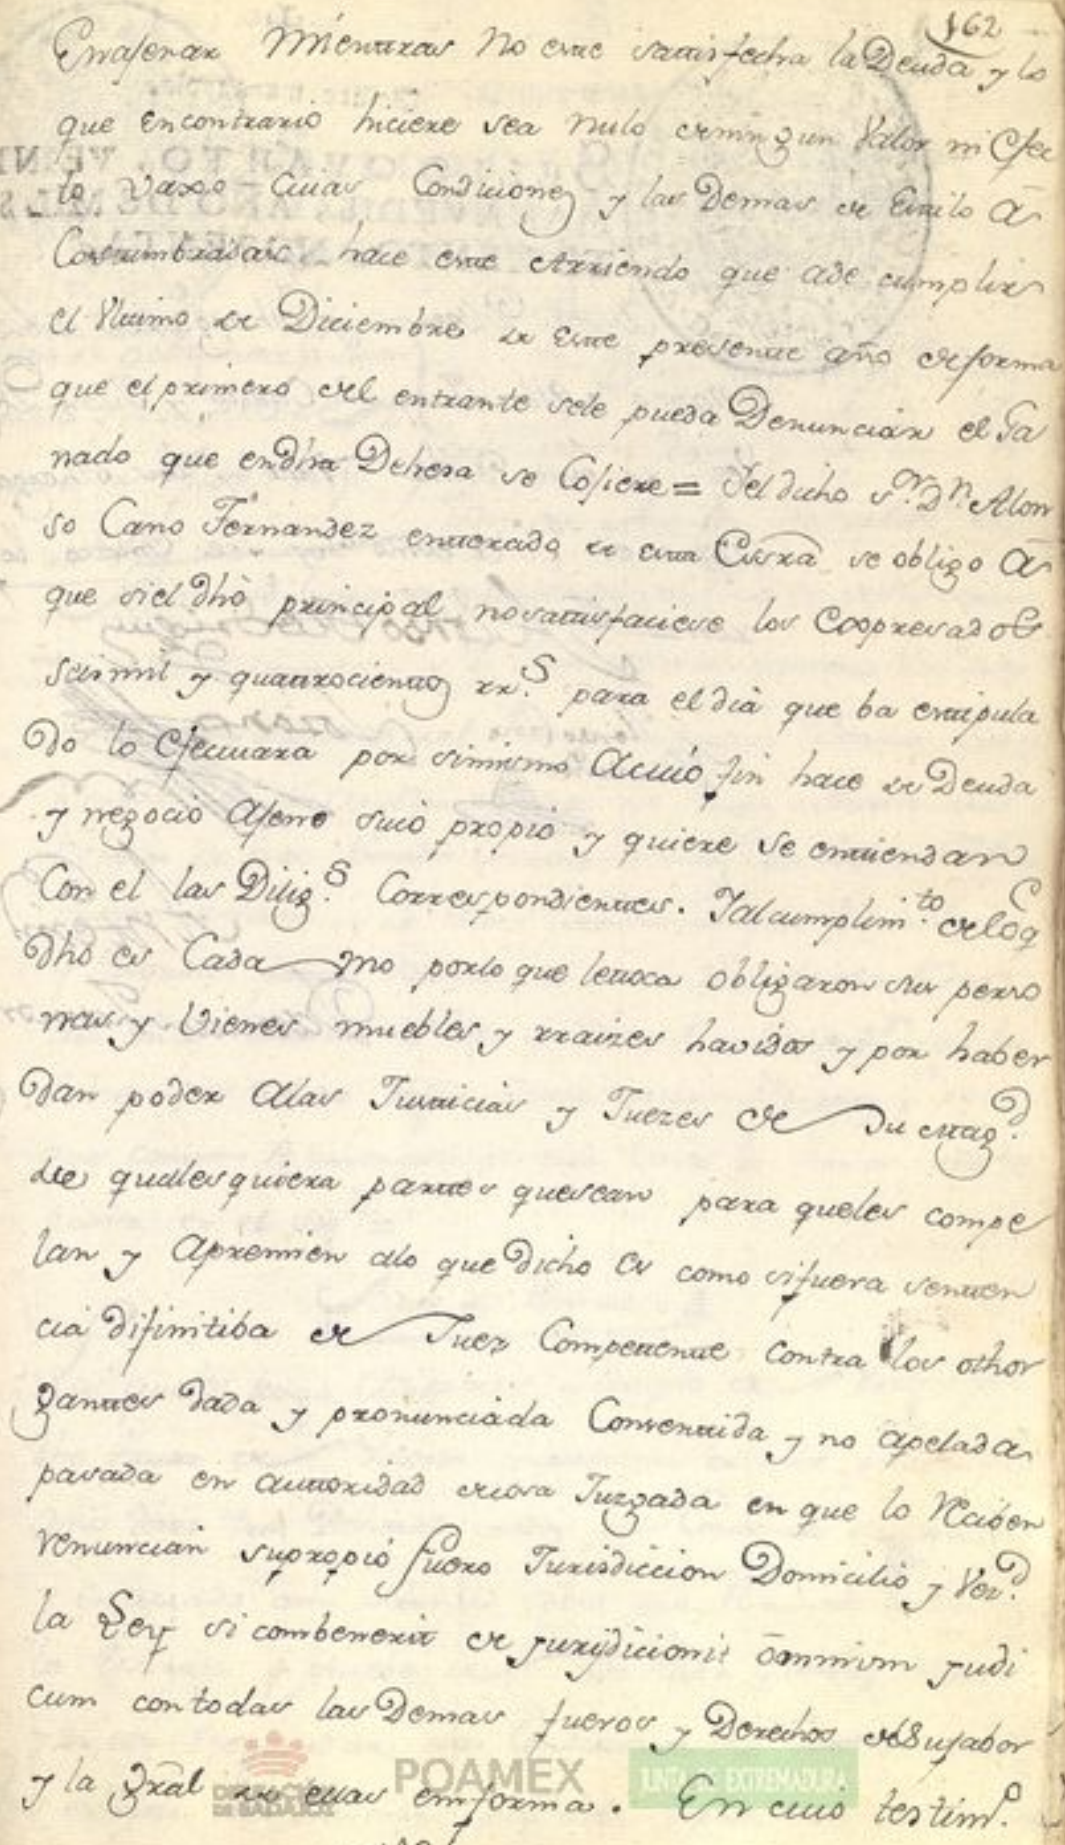 162
Enajenar Mientras No este satisfecha la Deuda y lo
que en contrario hiciere sea nulo deningun Valor ni Efec
to vaxo Cuias Condiciones y las Demas de Estilo A
Costumbradas hace este Arriendo que ade cumplir
el Vltimo de Diciembre de este presente año deforma
que el primero del entrante sele pueda Denunciar el Ga
nado que endha Dehesa se Cojiere = Yel dicho Sr. Dn. Alon
so Cano Fernandez enterado de esta Escra se obligo A
que siel dho principal nosatisfaciese los Coopresados
seismil y quattrocientos rrs. para el dia que ba estipula
do lo Efectuara por simismo Acuio fin hace de Deuda
y negocio Ajeno suio propio y quiere se entiendan
Con el las Diligs. Correspondientes. Yalcumplimto. deloq
dho es Cada uno porlo que letoca obligaron sus perso
nas y Vienes muebles y rraizes havidos y por haber
dan poder Alas Justicias y Juezes de Su Magd.
de qualesquiera partes quesean para queles compe
lan y Apremien alo que Dicho Es como sifuera senten
cia difinitiba de Juez Competente contra los othor
gantes dada y pronunciada Consentida y no apelada
pasada en auttoridad decosa Juzgada en que lo Reciben
renuncian supropio fuero Jurisdiccion Domicilio y Vezd.
la Ley si combenerit de jurisdicionis omnium judi
cum contodas las Demas fueros y Derechos desufabor
y la Gral de ellas enforma. En cuio testimo.
DIPUTACIÓN DE BADAJOZ POAMEX JUNTA DE EXTREMADURA